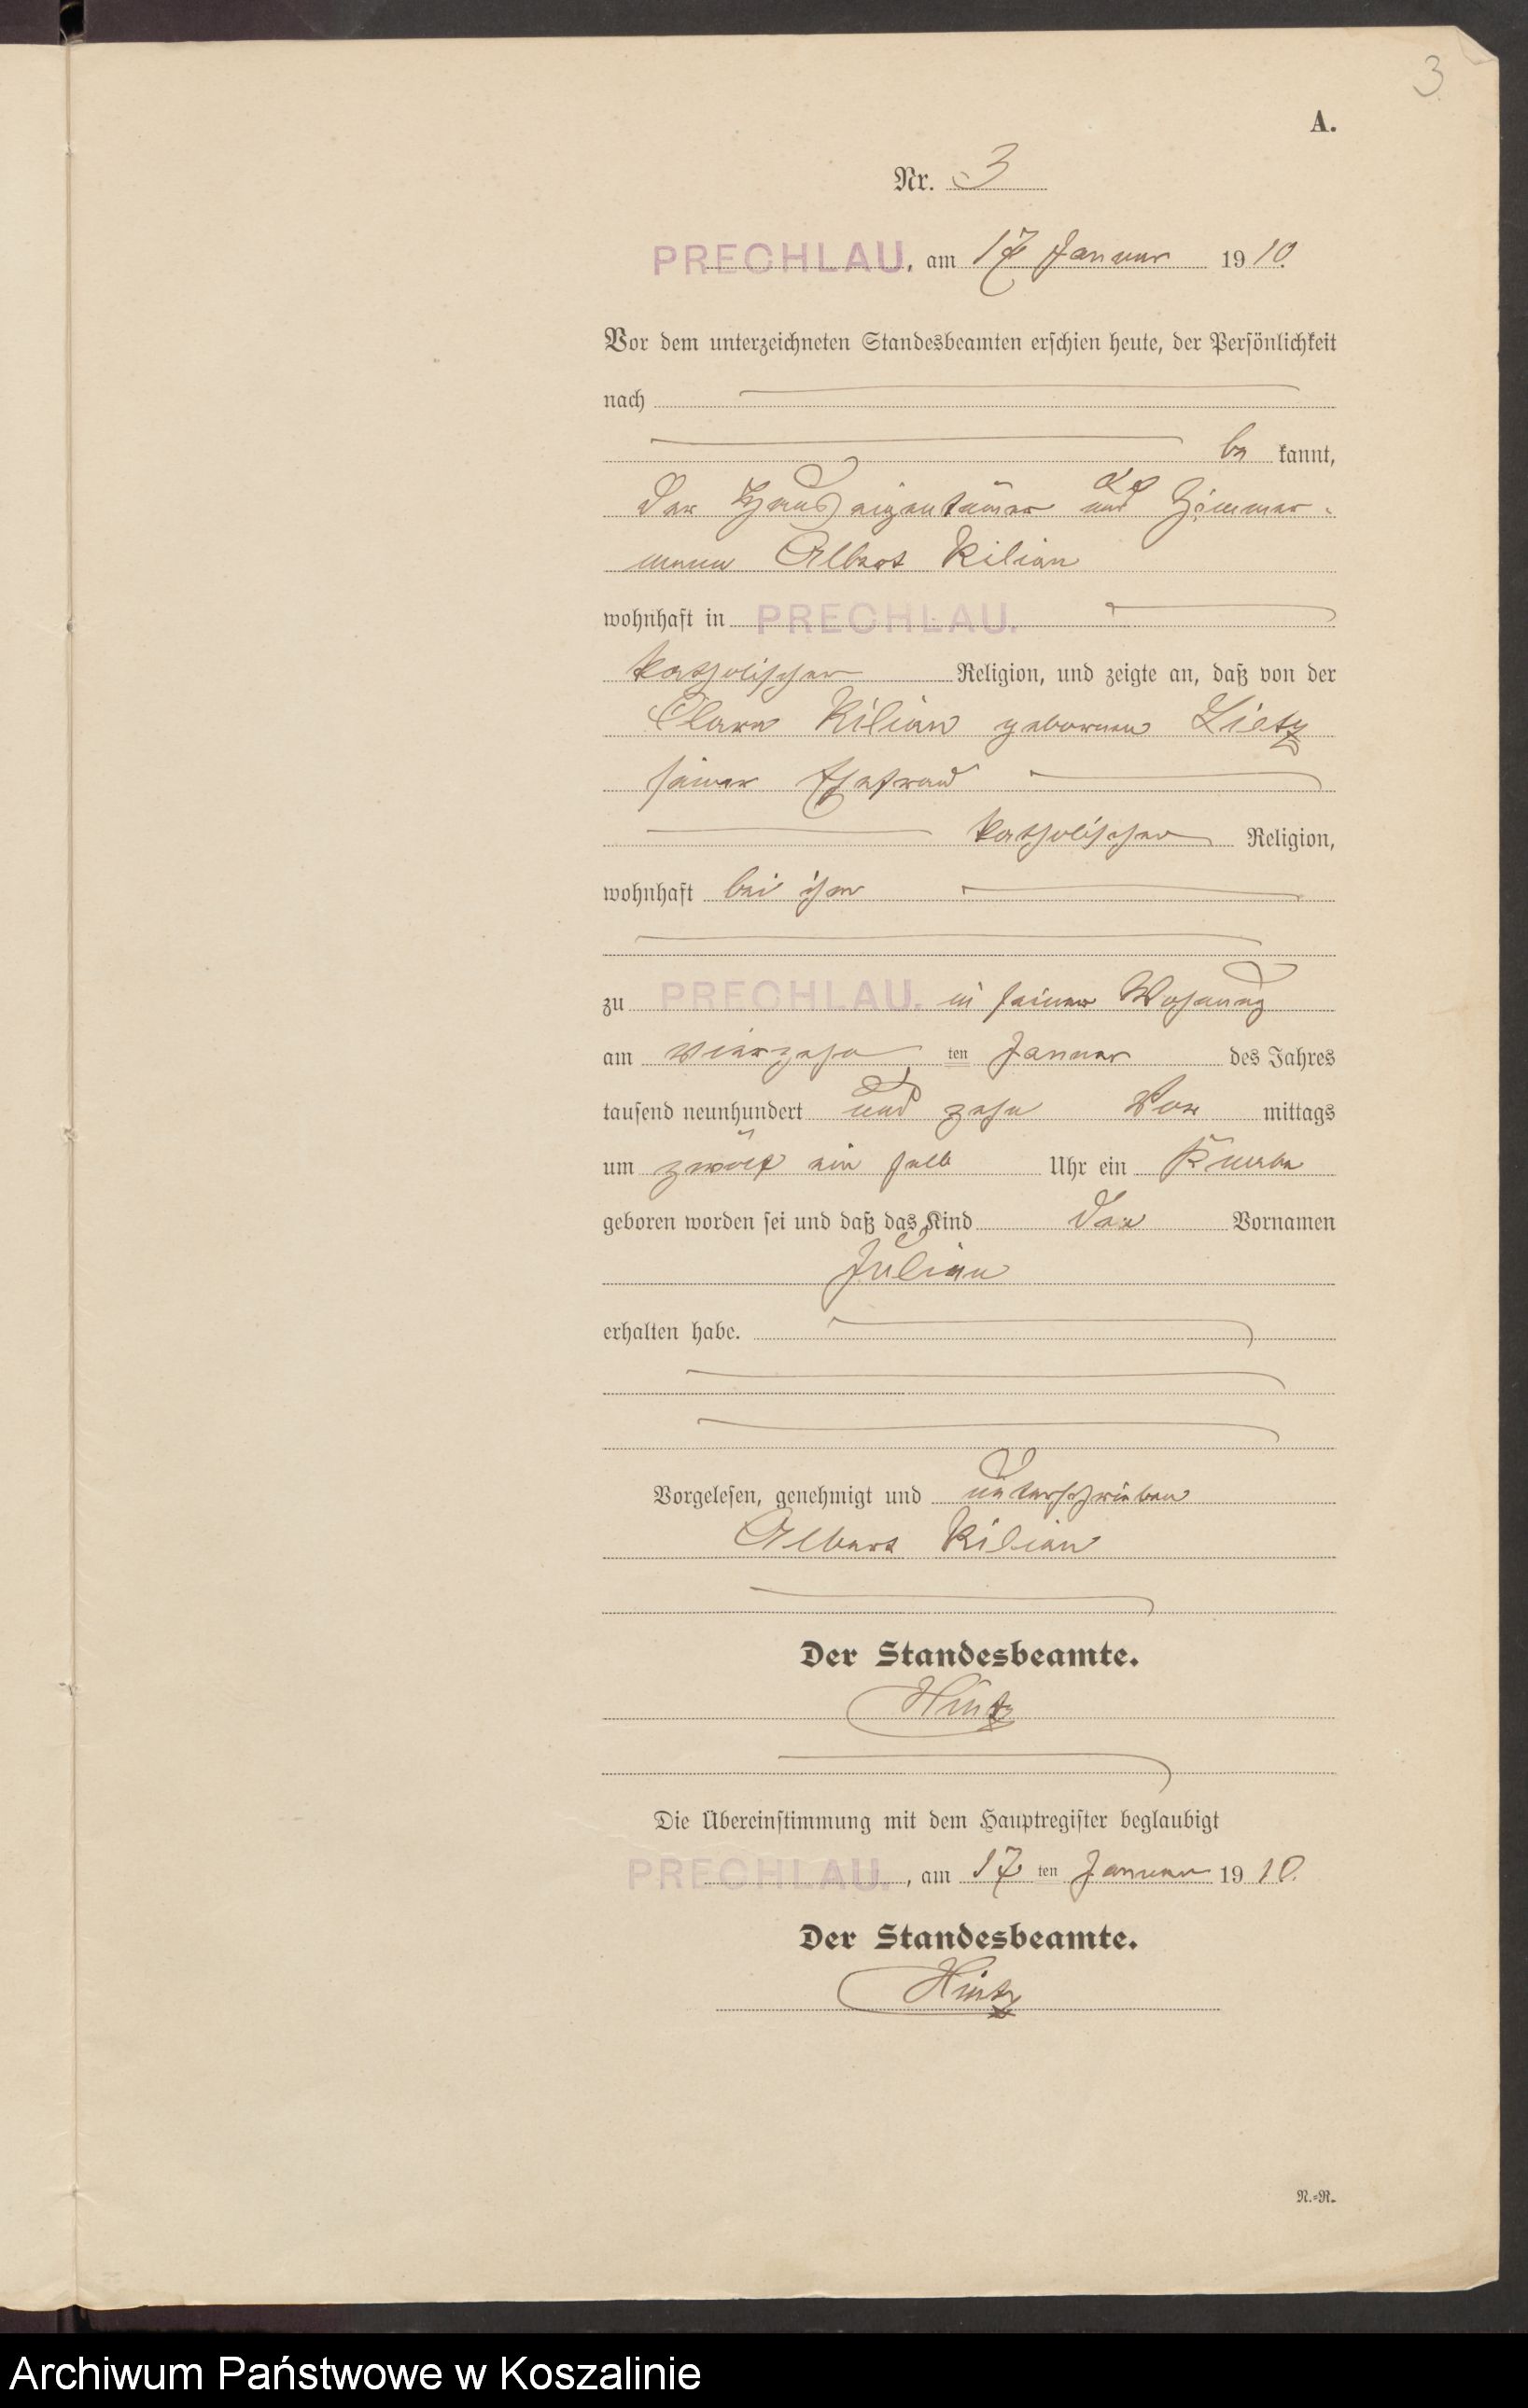 3
A.
Nr. 3
PRECHLAU, am 17 Januar 1910.
Vor dem unterzeichneten Standesbeamten erschien heute, der Persönlichkeit
nach
be kannt,
der Hauseigentümer und Zimmer-
mann Albert Kilian
wohnhaft in PRECHLAU.
katholischer Religion, und zeigte an, daß von der
Clara Kilian geborenen Lietz
seiner Ehefrau
katholischer Religion,
wohnhaft bei ihm
zu PRECHLAU. in seiner Wohnung
am vierzehn ten Januar des Jahres
tausend neunhundert und zehn Vor mittags
um zwölf ein halb Uhr ein Knabe
geboren worden sei und daß das Kind den Vornamen
Julian
erhalten habe.
Vorgelesen, genehmigt und unterschrieben
Albert Kilian
Der Standesbeamte.
Hintz
Die Übereinstimmung mit dem Hauptregister beglaubigt
PRECHLAU., am 17 ten Januar 1910.
Der Standesbeamte.
Hintz
N.=R.
Archiwum Państwowe w Koszalinie